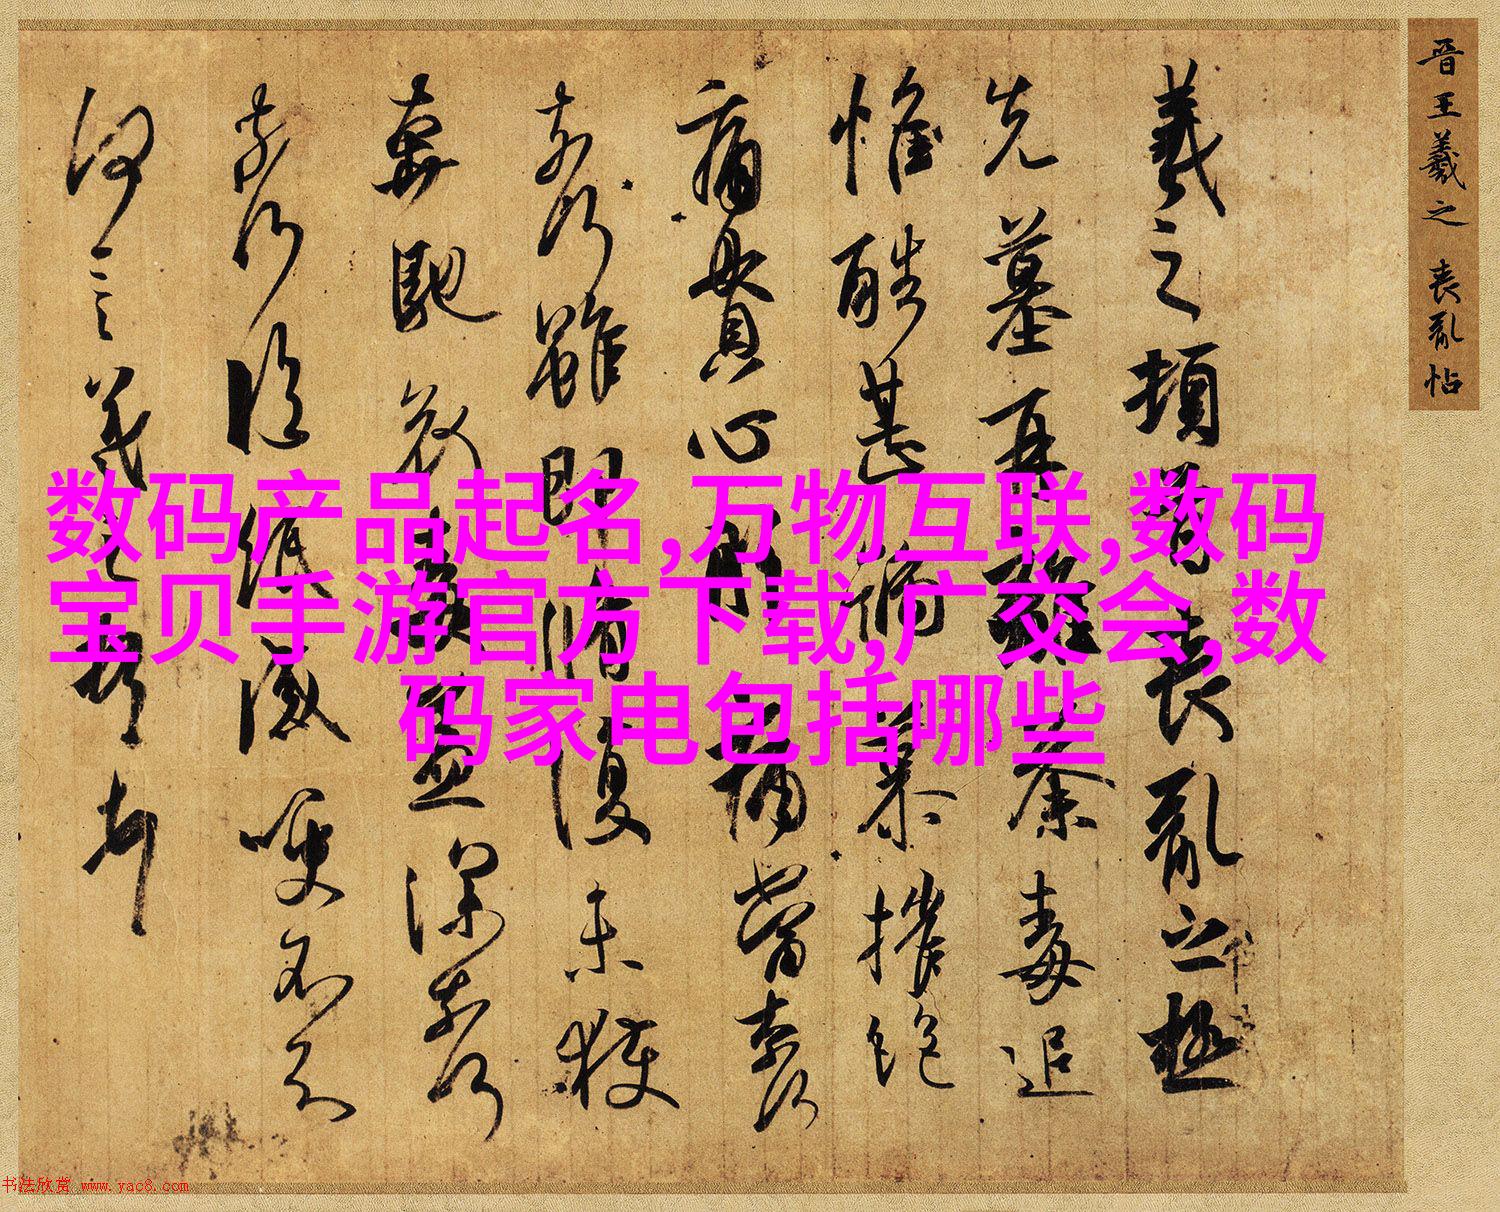 晋王羲之 喪亂帖
羲之頓首喪亂之極
先墓再離荼毒追
惟酷甚號慕摧絕
痛貫心肝痛當奈何
奈何雖即脩復未獲
奔馳哀毒益深奈何
奈何臨紙感哽不知
何言羲之頓首
数码产品起名,万物互联,数码
宝贝手游官方下载,广交会,数
码家电包括哪些
书法欣赏 www.yac8.com